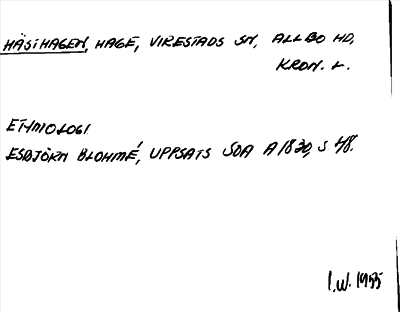 HÄSTHAGEN, HAGE, VIRESTADS SN, ALLBO HD,
KRON. L.
ETYMOLOGI
ESBJÖRN BLOHMÉ, UPPSATS SOA A 1820, S 48.
I.W. 1955